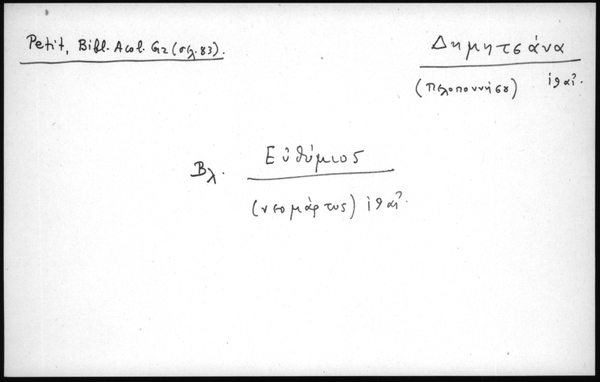 Petit, Bibl. Acol. Gr (σελ. 83).
Δημητσάνα
(Πελοποννήσου) ιθ αἰ.
Βλ. Εὐθύμιος
(νεομάρτυς) ιθ αἰ.